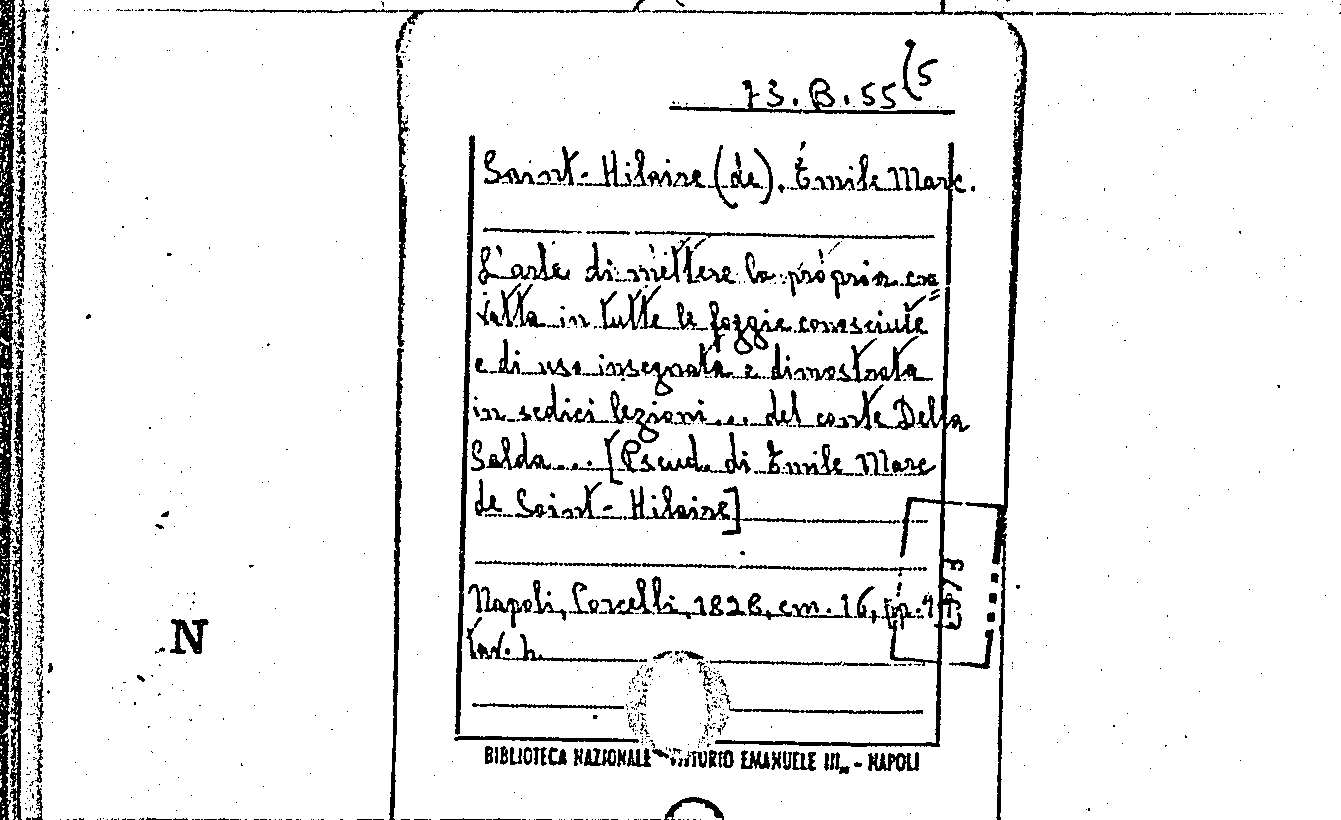 73.B.55(5
Saint-Hilaire (de), Émile Marc.
L'arte di mettere la propria cra=
vatta in tutte le foggie conosciute
e di uso insegnata e dimostrata
in sedici lezioni... del conte Della
Salda... [Pseud. di Émile Marc
de Saint-Hilaire]
Napoli, Porcelli, 1828, cm. 16, pp.
tav. 4.
N
BIBLIOTECA NAZIONALE VITTORIO EMANUELE III„ - NAPOLI